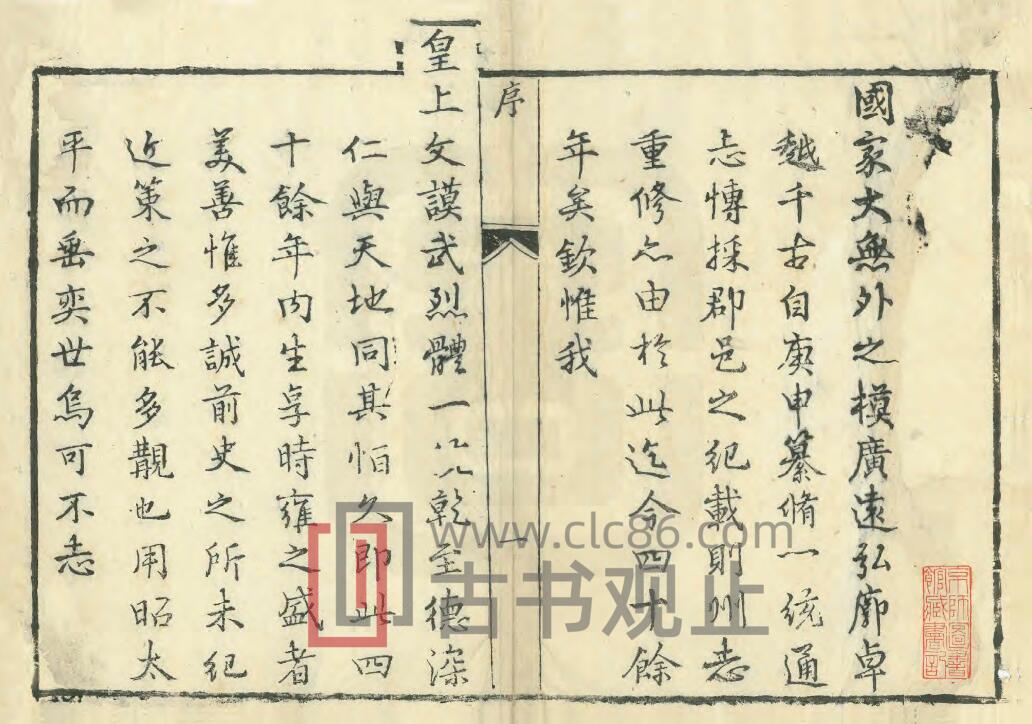 國家大無外之模廣遠弘廓卓
越千古自庚申纂脩一統通
志慱採郡邑之紀載則州志
重修亦由於此迄今四十餘
年矣欽惟我
序
一
皇上文謨武烈體一以乾至德深
仁與天地同其恒久即此四
十餘年內生享時雍之盛者
美善惟多誠前史之所未紀
近策之不能多覯也用昭太
平而垂奕世烏可不志
www.clc86.com
古书观止